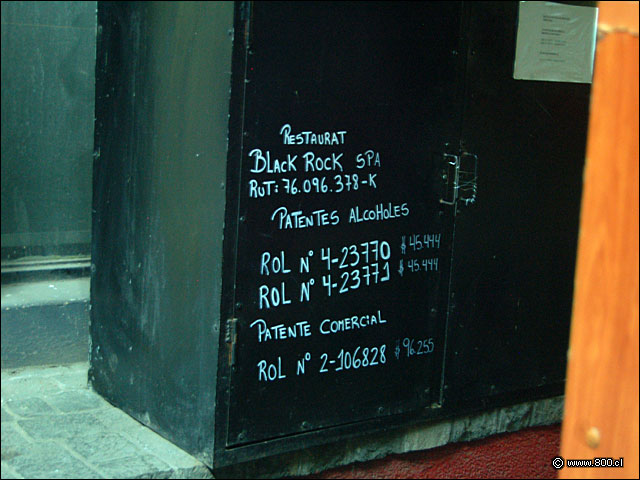 RESTAURAT
BLACK ROCK SPA
RUT: 76.096.378-K
PATENTES ALCOHOLES
ROL N° 4-23770 $ 45.444
ROL N° 4-23771 $ 45.444
PATENTE COMERCIAL
ROL N° 2-106828 $ 96.255
© www.800.cl